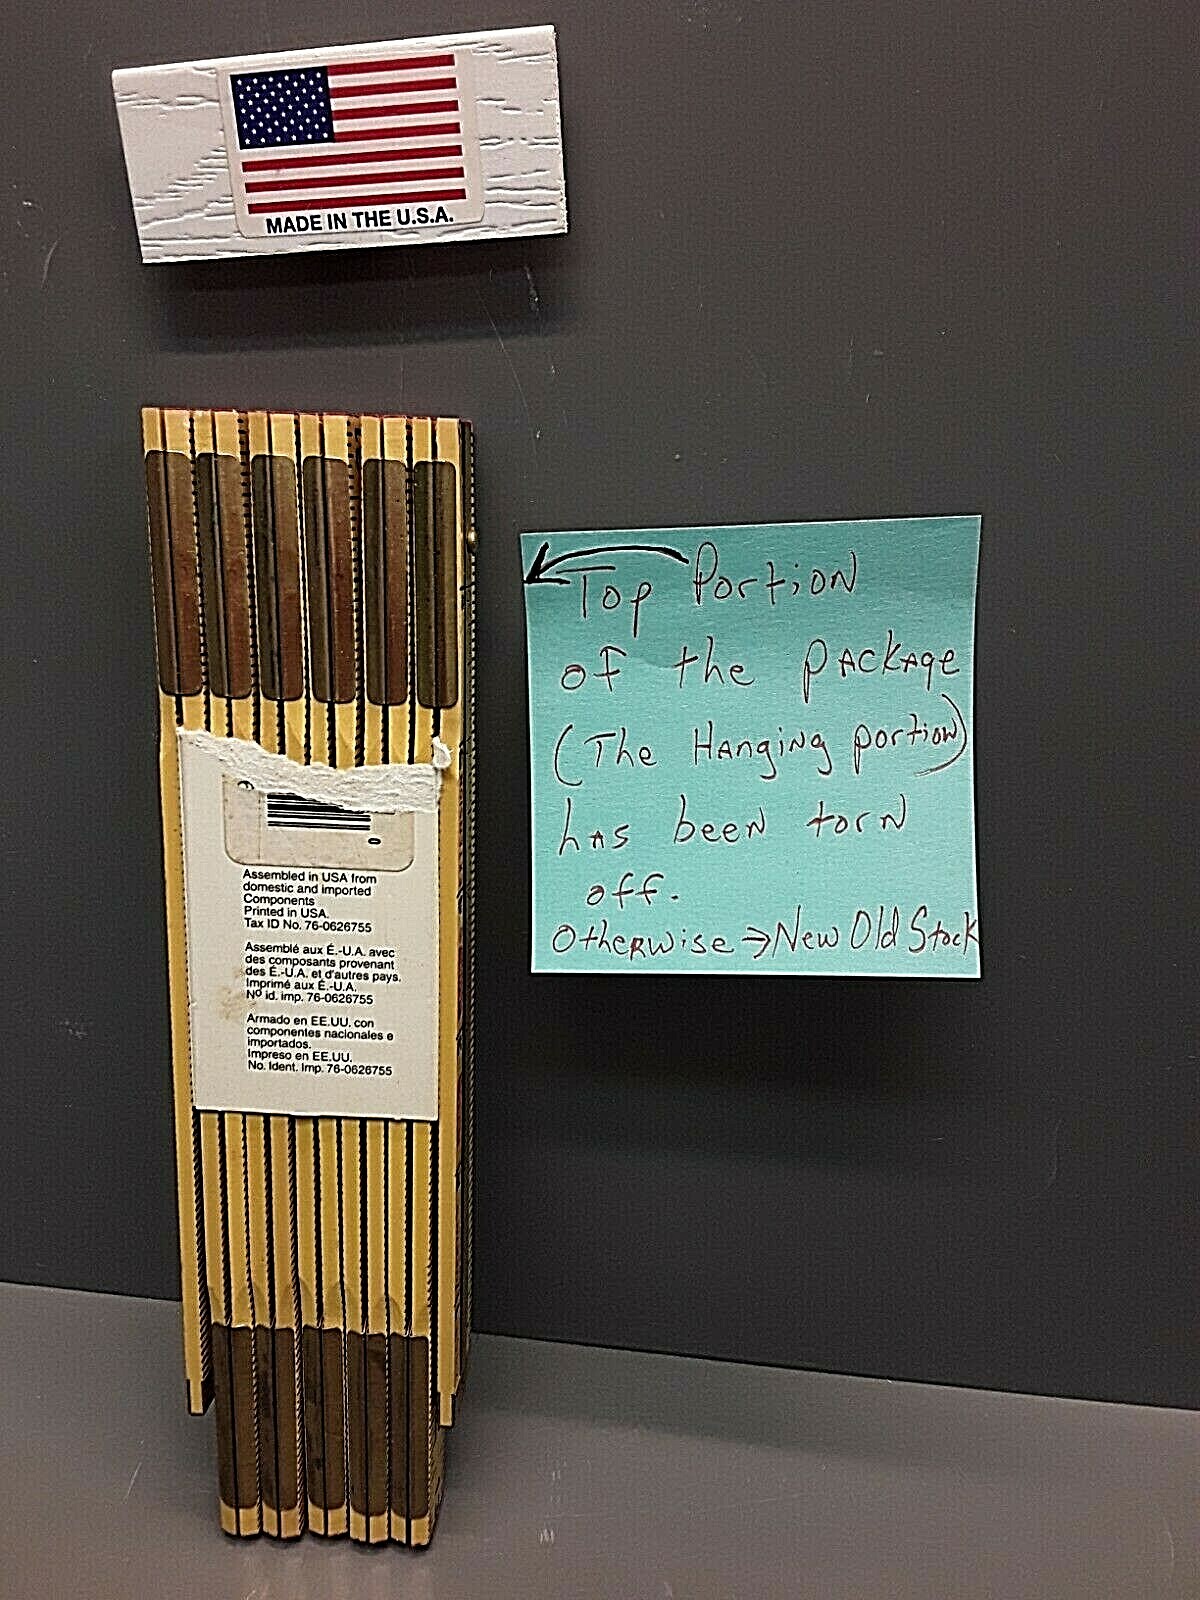 MADE IN THE U.S.A.
Top Portion
of the PACKAge
(The Hanging portion)
has been torn
off.
Otherwise → New Old Stock
Assembled in USA from
domestic and imported
Components
Printed in USA.
Tax ID No. 76-0626755
Assemblé aux É.-U.A. avec
des composants provenant
des É.-U.A. et d'autres pays.
Imprimé aux É.-U.A.
Nº id. imp. 76-0626755
Armado en EE.UU. con
componentes nacionales e
importados.
Impreso en EE.UU.
No. Ident. Imp. 76-0626755